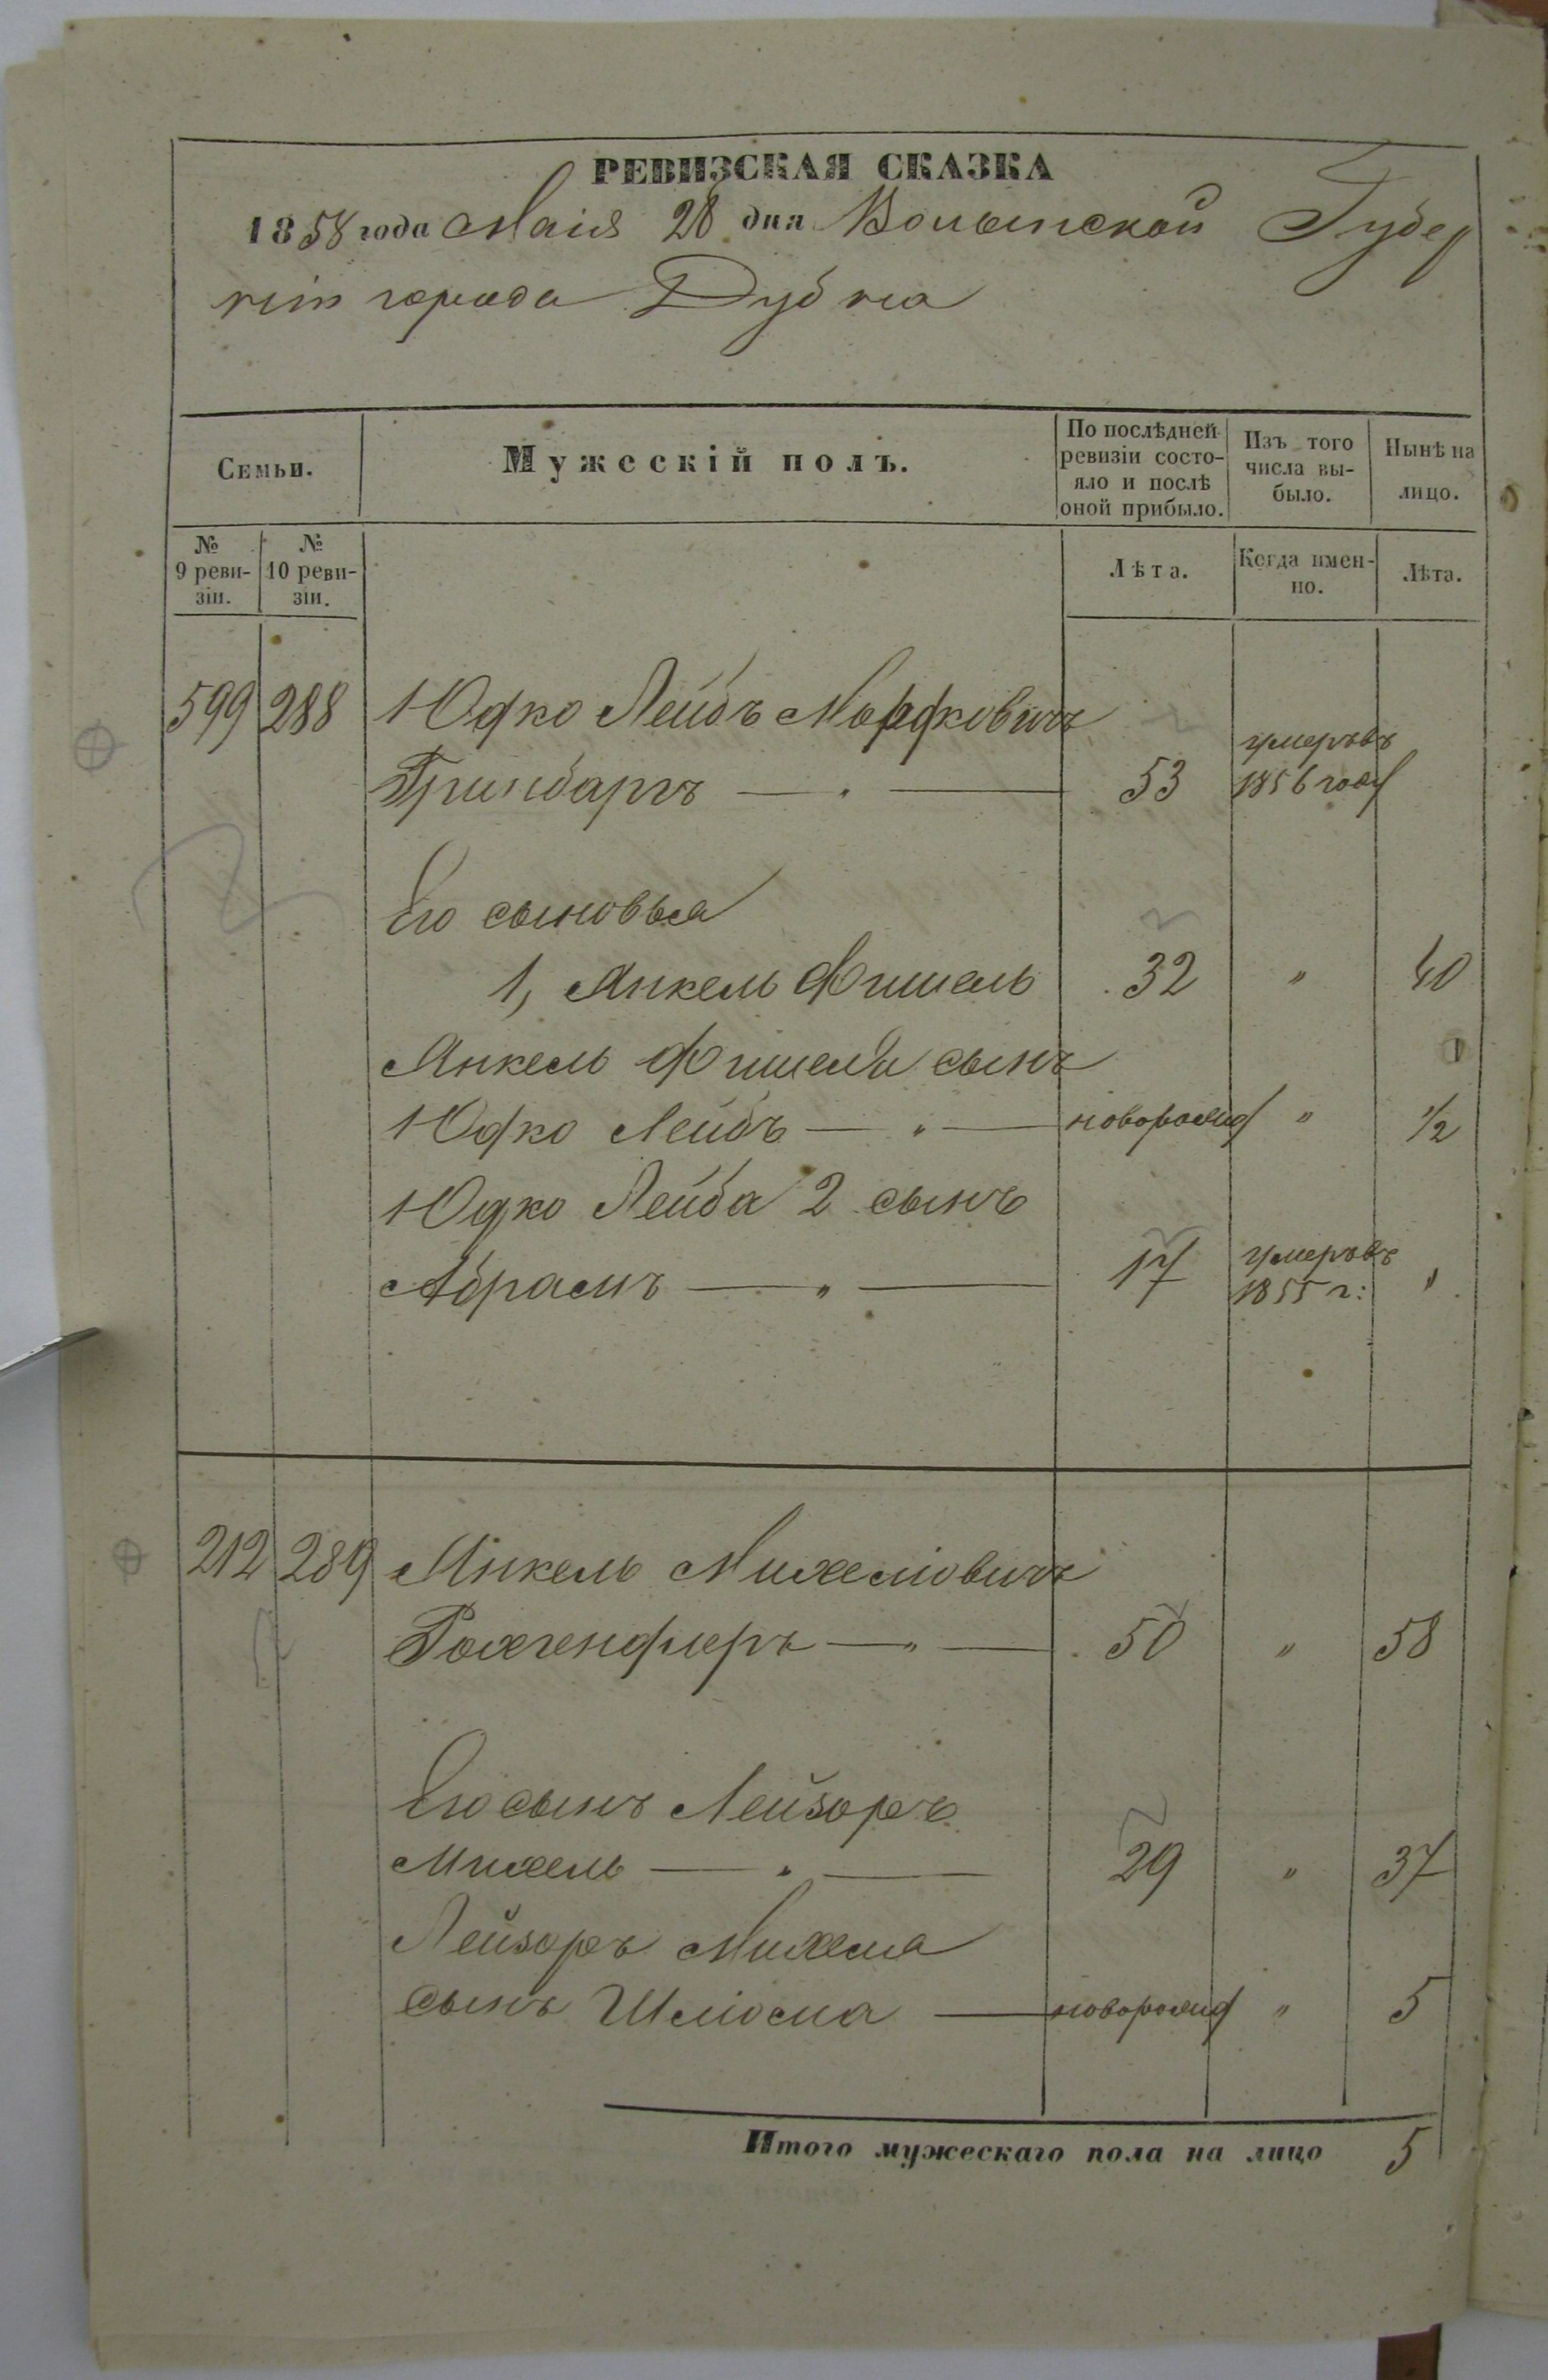 РЕВИЗСКАЯ СКАЗКА
1858 года Маія 28 дня Волынской Губер
ніи города Дубна
Семьи.
Мужескій полъ.
По послѣдней ревизіи состо-
яло и послѣ
оной прибыло.
Изъ того
числа вы-
было.
Нынѣ на
лицо.
№
9 реви-
зіи.
№
10 реви-
зіи.
Лѣта.
Когда имен-
но.
Лѣта.
599 288 Юдко Лейбъ Мордковичъ
Гринбаргъ — „ — 53 умеръ въ 1856 году
Его сыновья
1, Янкель Фишель 32 „ 40
Янкель Фишеля сынъ
Юдко Лейбъ — „ — новорожд „ 1/2
Юдко Лейба 2 сынъ
Абрамъ — „ — 17 умеръ въ 1855 г: „
212 289 Янкель Михелювичъ
— „ — 50 „ 58
Его сынъ Лейзоръ
Михель — „ — 29 „ 37
Лейзоръ Михеля
сынъ Шлюома — новорожд „ 5
Итого мужескаго пола на лицо 5